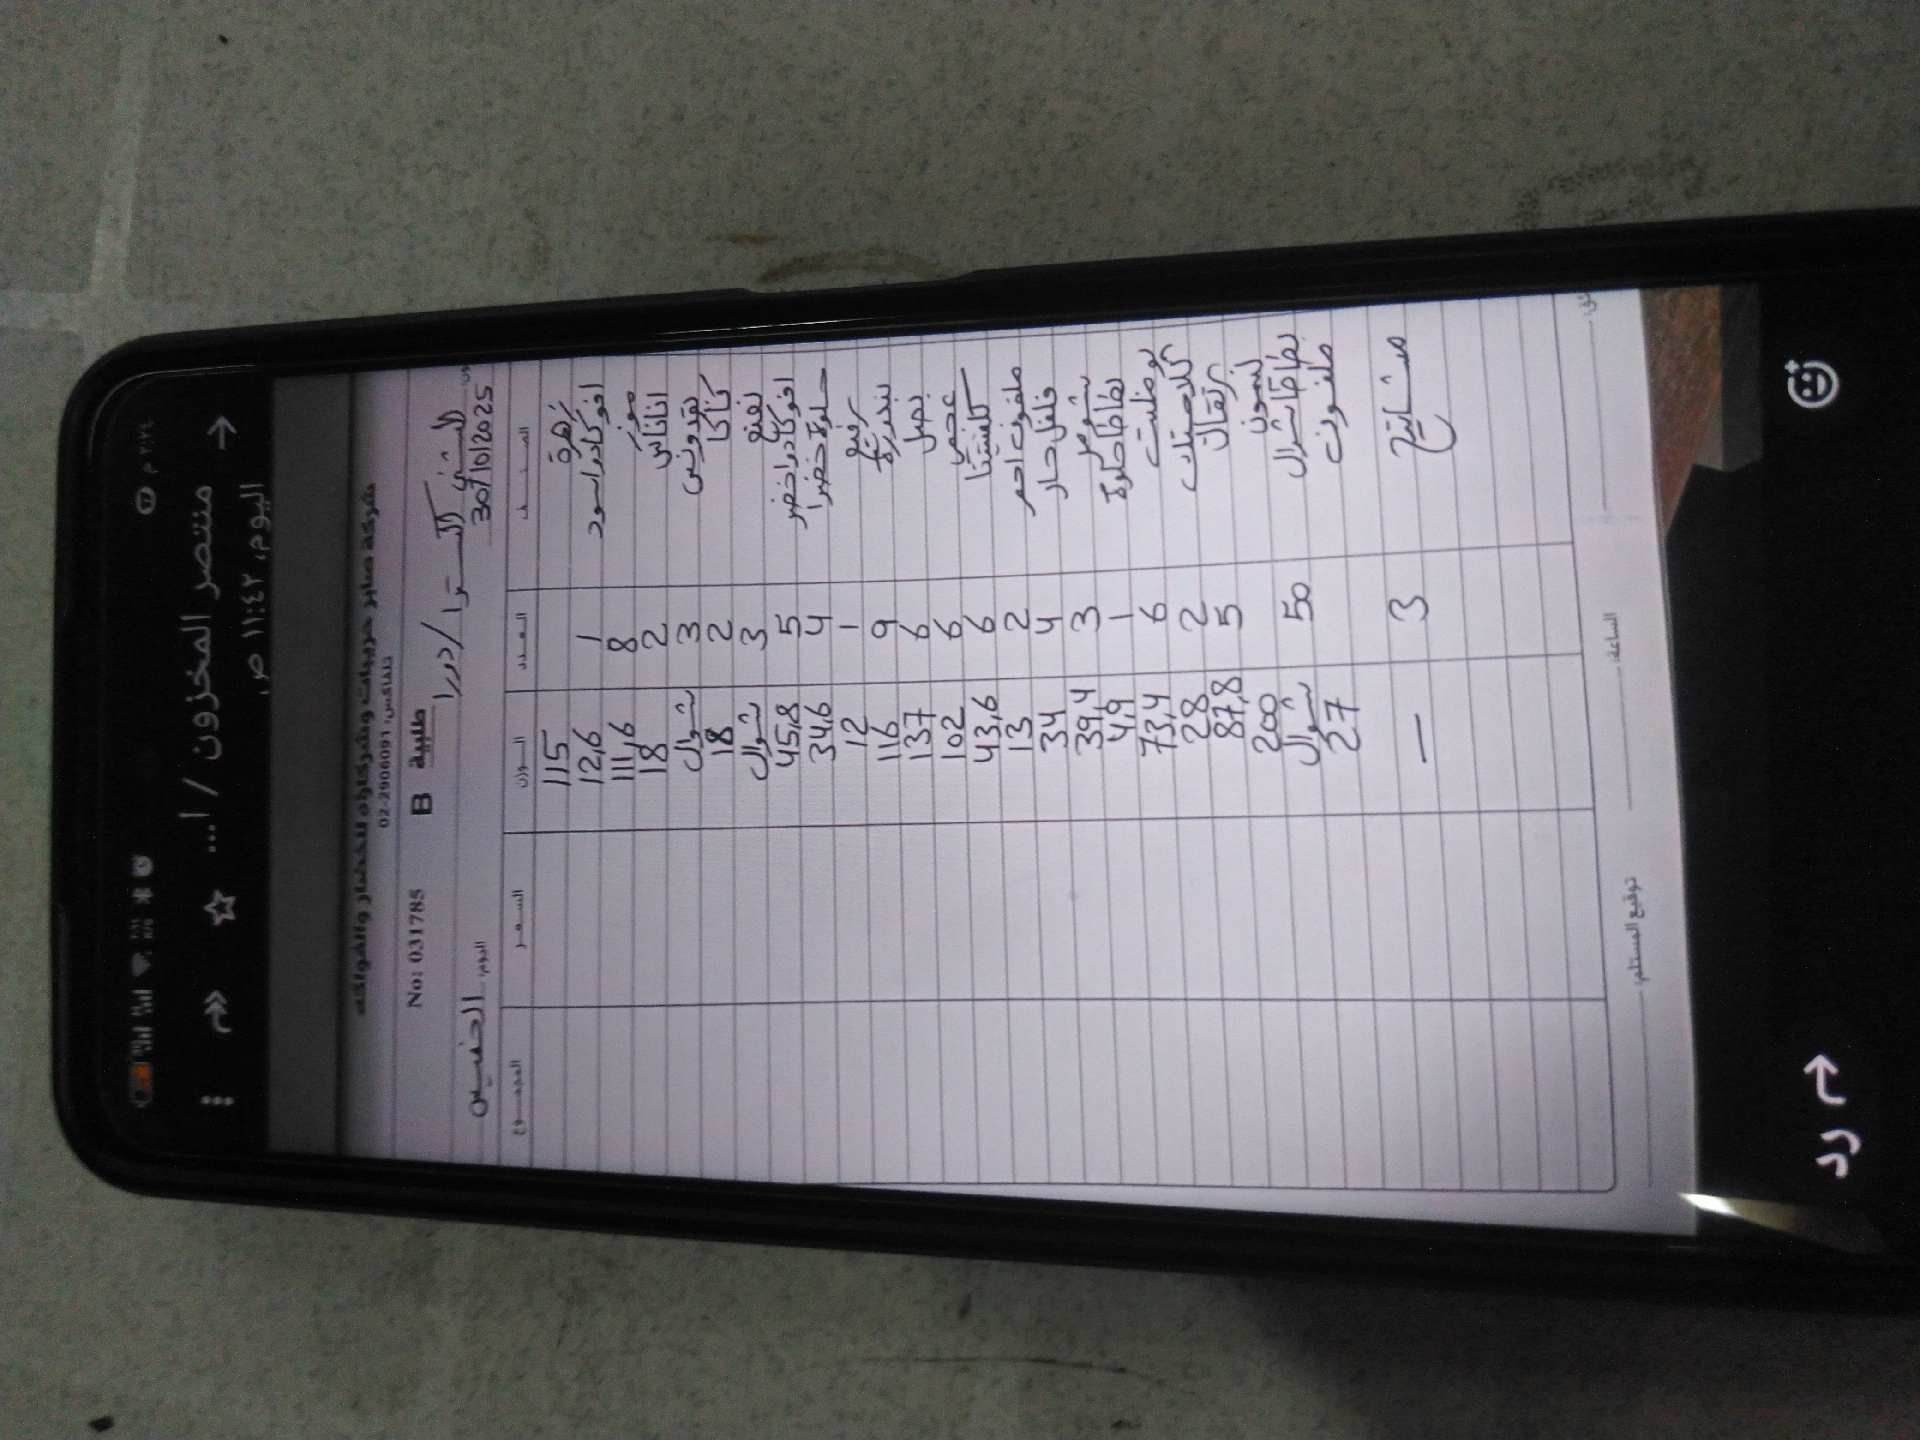 ٢:٢٤ م
منتصر المخزون / ا...
اليوم، ١١:٤٢ ص
شركة صابر حريبات وشركاؤه للخضار والفواكه
تلفاكس: 02-2906091
No: 031785 B طلبية
الشني اكسترا / دورا
الخميس 30/10/2025
الصنف العدد الوزن السعر المجموع
زهرة 115
افوكادو اسود 1 12,6
موز 8 111,6
اناناس 2 18
بقدونس 3 شوال
كاكا 2 18
نعنع 3 شوال
افوكادو اخضر 5 45,8
حلوة خضرا 4 34,6
1 12
بندورة 9 116
بصل 6 137
6 102
كلمنتينا 6 43,6
ملفوف احمر 2 13
فلفل حار 4 34
شومر 3 39,4
بطاطا حلوة 1 4,9
بوظليت 6 73,4
2 28
برتقال 5 87,8
ليمون 200
بطاطا شوال 50 شوال
ملفوف 27
مشاتيح 3 —
الساعة:
توقيع المستلم:
رد